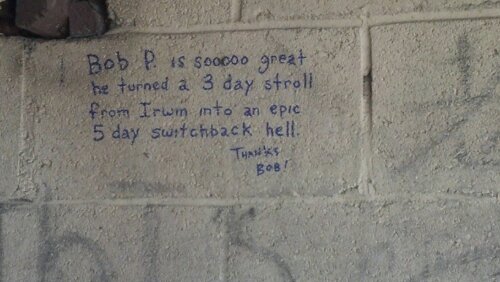 Bob P. is sooooo great
he turned a 3 day stroll
from Irwin into an epic
5 day switchback hell.
THANKS
BOB!